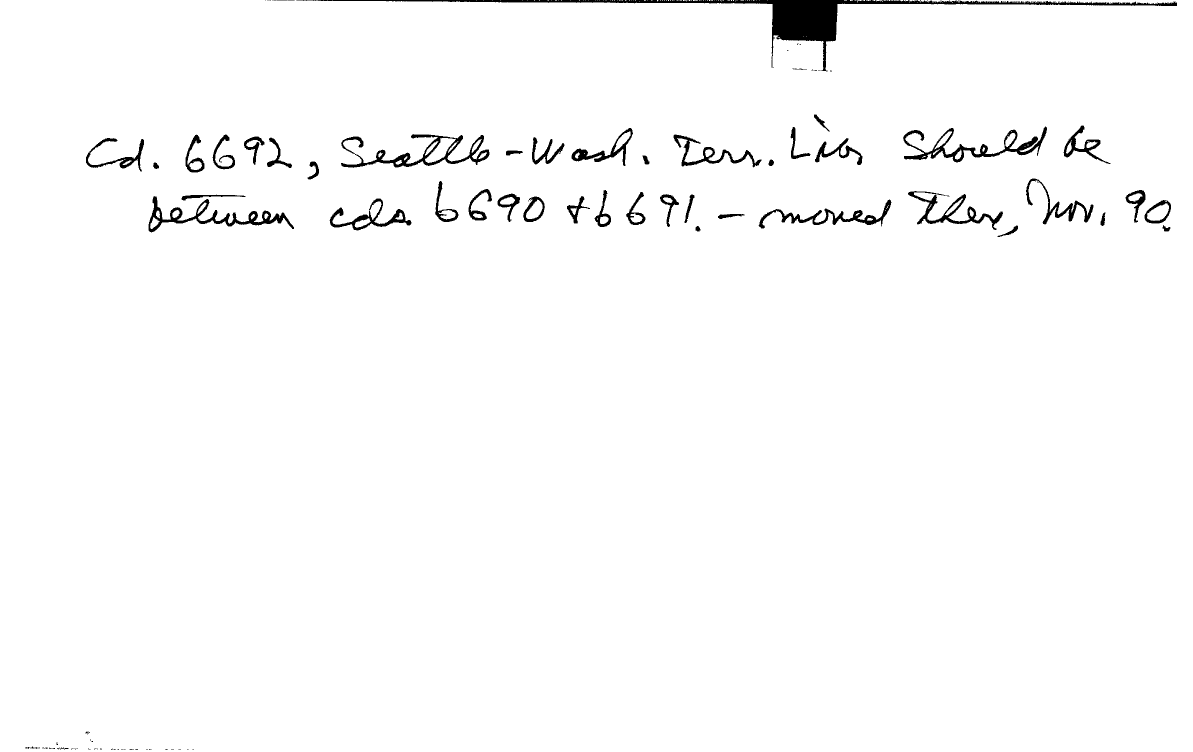 Cd. 6692, Seattle-Wash. Terr. Lib. Should be
between cds. 6690 + 6691. - moved there, Nov. 90.